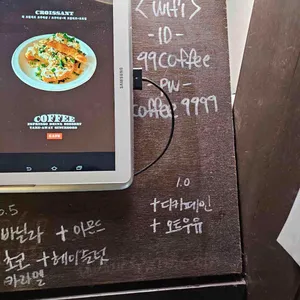 CROISSANT
COFFEE
SAMSUNG
< WiFi >
- ID -
99coffee
- PW -
coffee 9999
0.5
바닐라 + 아몬드
초코 + 헤이즐넛
카라멜
1.0
+ 디카페인
+ 오트우유